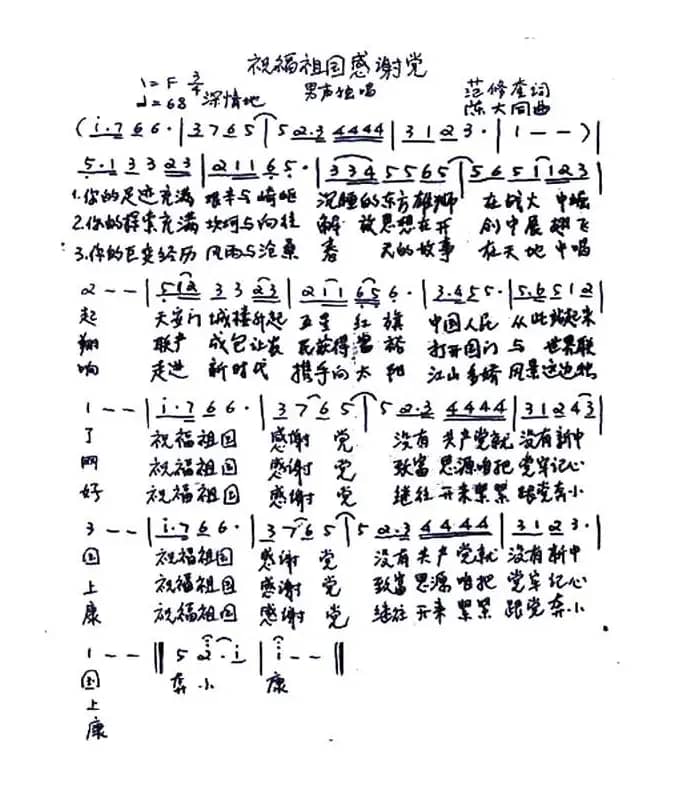 祝福祖国感谢党
1=F 3/4 男声独唱 范修奎词
♩=68 深情地 陈大同曲
(i·7 6 6·|3 7 6 5|5 2·3 4444|3 1 2 3·|1 - -)|
5·1 3 3 2 3|2 1 1 6 5·|3 3 4 5 5 6 5|5 6 5 1 1 2 3|
1.你的足迹充满 艰辛与崎岖 沉睡的东方雄狮 在 中崛
2.你的探索充满 坎坷与向往 解放思想在开 创中展翅飞
3.你的巨变经历 风雨与沧桑 春天的故事 在天地中唱
2 - -|5 1 2 3 3 2 3|2 1 1 6 5 6·|3·4 5 5·|5·6 5 1 2|
起 天安门 城楼升起 五星红旗 中国人民 从此站起来
翔 联产 成包让农 民获得富裕 打开国门 与世界联
响 走进 新时代 携手向太阳 江山多娇 风景这边独
1 - -|i·7 6 6·|3 7 6 5|5 2·3 4444|3 1 2 4 3|
了 祝福祖国 感谢党 没有共产党就 没有新中
网 祝福祖国 感谢党 致富思源咱把 党牢记心
好 祝福祖国 感谢党 继往开来紧紧 跟党奔小
3 - -|i·7 6 6·|3 7 6 5|5 2·3 4 4 4 4|3 1 2 3·|
国 祝福祖国 感谢党 没有共产党就 没有新中
上 祝福祖国 感谢党 致富思源咱把 党牢记心
康 祝福祖国 感谢党 继往开来紧紧 跟党奔小
1 - -‖5 2·i|i - -‖
国 奔小 康
上
康